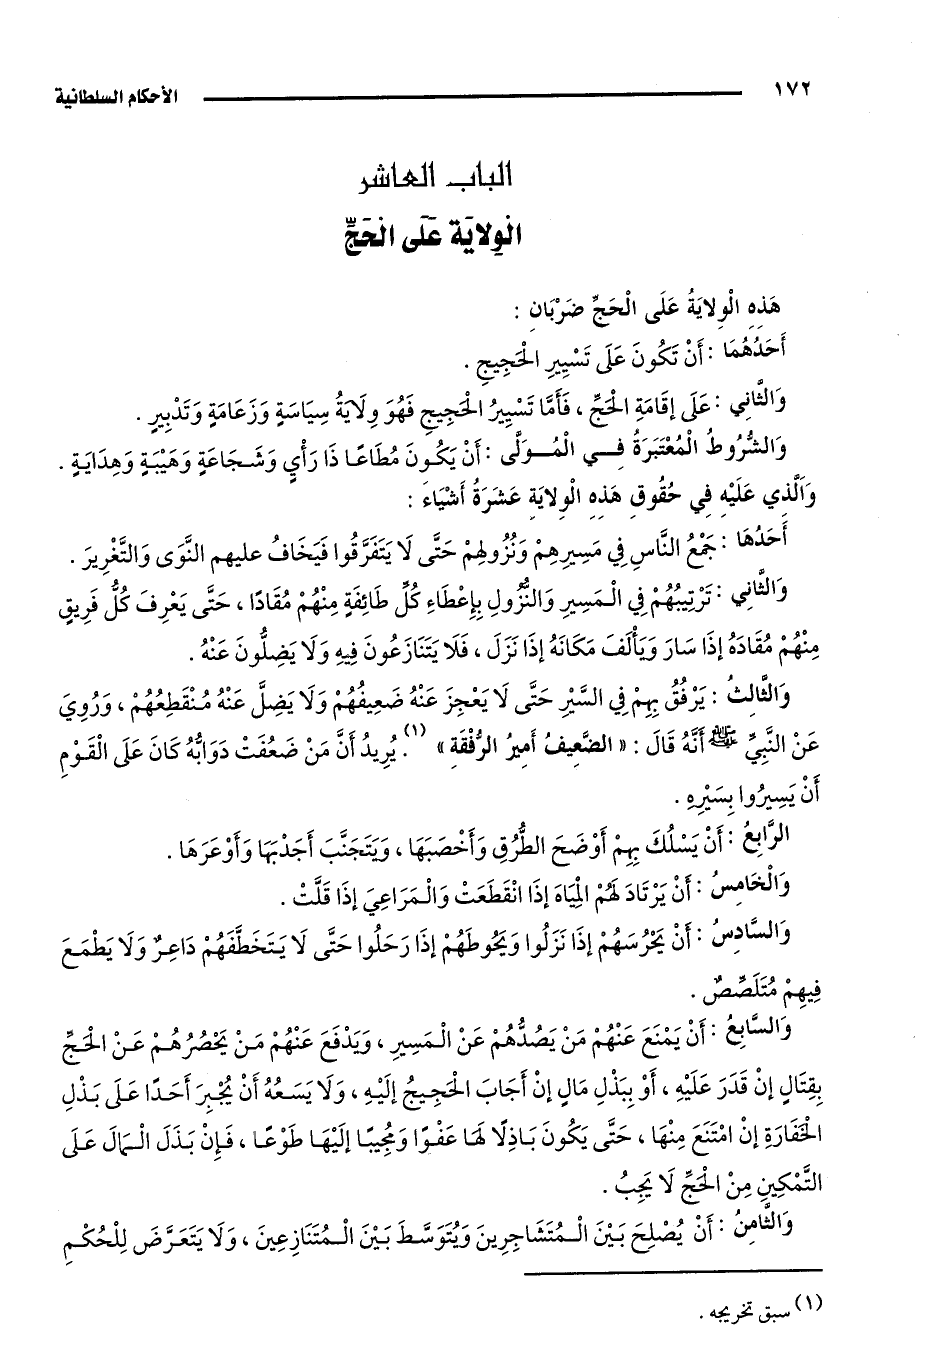 ١٧٢ الأحكام السلطانية
الباب العاشر
الْوِلايَة عَلَى الْحَجِّ
هَذِهِ الْوِلايَةُ عَلَى الْحَجِّ ضَرْبَانِ :
أَحَدُهُمَا : أَنْ تَكُونَ عَلَى تَسْيِيرِ الْحَجِيجِ .
وَالثَّانِي : عَلَى إقَامَةِ الْحَجِّ ، فَأَمَّا تَسْيِيرُ الْحَجِيجِ فَهُوَ وِلَايَةُ سِيَاسَةٍ وَزَعَامَةٍ وَتَدْبِيرٍ .
وَالشُّرُوطُ الْمُعْتَبَرَةُ فِي الْمُوَلَّى : أَنْ يَكُونَ مُطَاعًا ذَا رَأْيٍ وَشَجَاعَةٍ وَهَيْبَةٍ وَهِدَايَةٍ .
وَاَلَّذِي عَلَيْهِ فِي حُقُوقِ هَذِهِ الْوِلايَةِ عَشَرَةُ أَشْيَاءَ :
أَحَدُهَا : جَمْعُ النَّاسِ فِي مَسِيرِهِمْ وَنُزُولِهِمْ حَتَّى لَا يَتَفَرَّقُوا فَيَخَافُ عليهم النَّوَى وَالتَّغْرِيرَ .
وَالثَّانِي : تَرْتِيبُهُمْ فِي الْمَسِيرِ وَالنُّزُولِ بِإِعْطَاءِ كُلِّ طَائِفَةٍ مِنْهُمْ مُقَادًا ، حَتَّى يَعْرِفَ كُلُّ فَرِيقٍ
مِنْهُمْ مُقَادَهُ إذَا سَارَ وَيَأْلَفَ مَكَانَهُ إذَا نَزَلَ ، فَلَا يَتَنَازَعُونَ فِيهِ وَلَا يَضِلُّونَ عَنْهُ .
وَالثَّالِثُ : يَرْفُقُ بِهِمْ فِي السَّيْرِ حَتَّى لَا يَعْجِزَ عَنْهُ ضَعِيفُهُمْ وَلَا يَضِلَّ عَنْهُ مُنْقَطِعُهُمْ ، وَرُوِيَ
عَنْ النَّبِيِّ ﷺ أَنَّهُ قَالَ : « الضَّعِيفُ أَمِيرُ الرُّفْقَةِ » (١). يُرِيدُ أَنَّ مَنْ ضَعُفَتْ دَوَابُّهُ كَانَ عَلَى الْقَوْمِ
أَنْ يَسِيرُوا بِسَيْرِهِ .
الرَّابِعُ : أَنْ يَسْلُكَ بِهِمْ أَوْضَحَ الطُّرُقِ وَأَخْصَبَهَا ، وَيَتَجَنَّبَ أَجْدَبَهَا وَأَوْعَرَهَا .
وَالْخَامِسُ : أَنْ يَرْتَادَ لَهُمْ الْمِيَاهَ إذَا انْقَطَعَتْ وَالْمَرَاعِيَ إذَا قَلَّتْ .
وَالسَّادِسُ : أَنْ يَحْرُسَهُمْ إذَا نَزَلُوا وَيَحُوطَهُمْ إذَا رَحَلُوا حَتَّى لَا يَتَخَطَّفَهُمْ دَاعِرٌ وَلَا يَطْمَعَ
فِيهِمْ مُتَلَصِّصٌ .
وَالسَّابِعُ : أَنْ يَمْنَعَ عَنْهُمْ مَنْ يَصُدُّهُمْ عَنْ الْمَسِيرِ ، وَيَدْفَعَ عَنْهُمْ مَنْ يَحْصُرُهُمْ عَنْ الْحَجِّ
بِقِتَالٍ إنْ قَدَرَ عَلَيْهِ ، أَوْ بِبَذْلِ مَالٍ إنْ أَجَابَ الْحَجِيجُ إلَيْهِ ، وَلَا يَسَعُهُ أَنْ يُجْبِرَ أَحَدًا عَلَى بَذْلِ
الْخَفَارَةِ إنْ امْتَنَعَ مِنْهَا ، حَتَّى يَكُونَ بَاذِلًا لَهَا عَفْوًا وَمُجِيبًا إلَيْهَا طَوْعًا ، فَإِنْ بَذَلَ الْمَالَ عَلَى
التَّمْكِينِ مِنْ الْحَجِّ لَا يَجِبُ .
وَالثَّامِنُ : أَنْ يُصْلِحَ بَيْنَ الْمُتَشَاجِرِينَ وَيُتَوَسَّطَ بَيْنَ الْمُتَنَازِعِينَ ، وَلَا يَتَعَرَّضَ لِلْحُكْمِ
(١) سبق تخريجه .